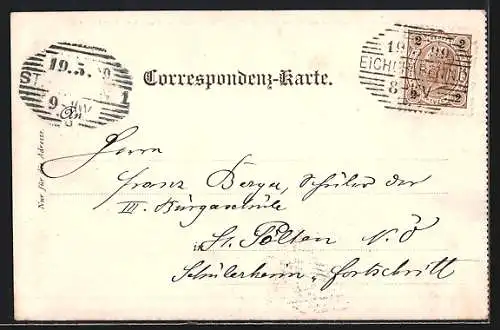 19.5.99
ST
9
1
19 5 99
EICHGRABEN N.Ö.
8 V
2 2
2 2
Correspondenz-Karte.
Nur für die Adresse.
Herrn
Franz Berger, Schüler der
III. Bürgerschule
in St. Pölten N. Ö
Schülerheim „Fortschritt